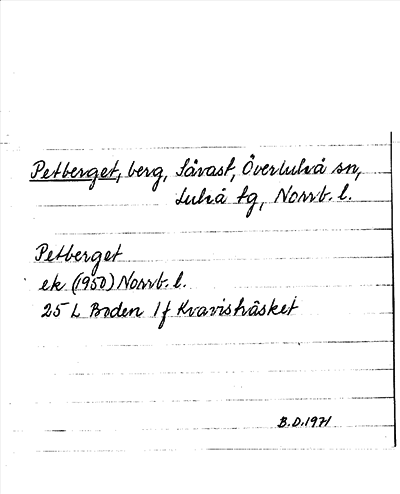 Petberget, berg, Sävast, Överluleå sn,
Luleå tg, Norrb. l.
Petberget
ek (1950) Norrb. l.
25 L Boden 1f Kvavisträsket
B.D. 1971